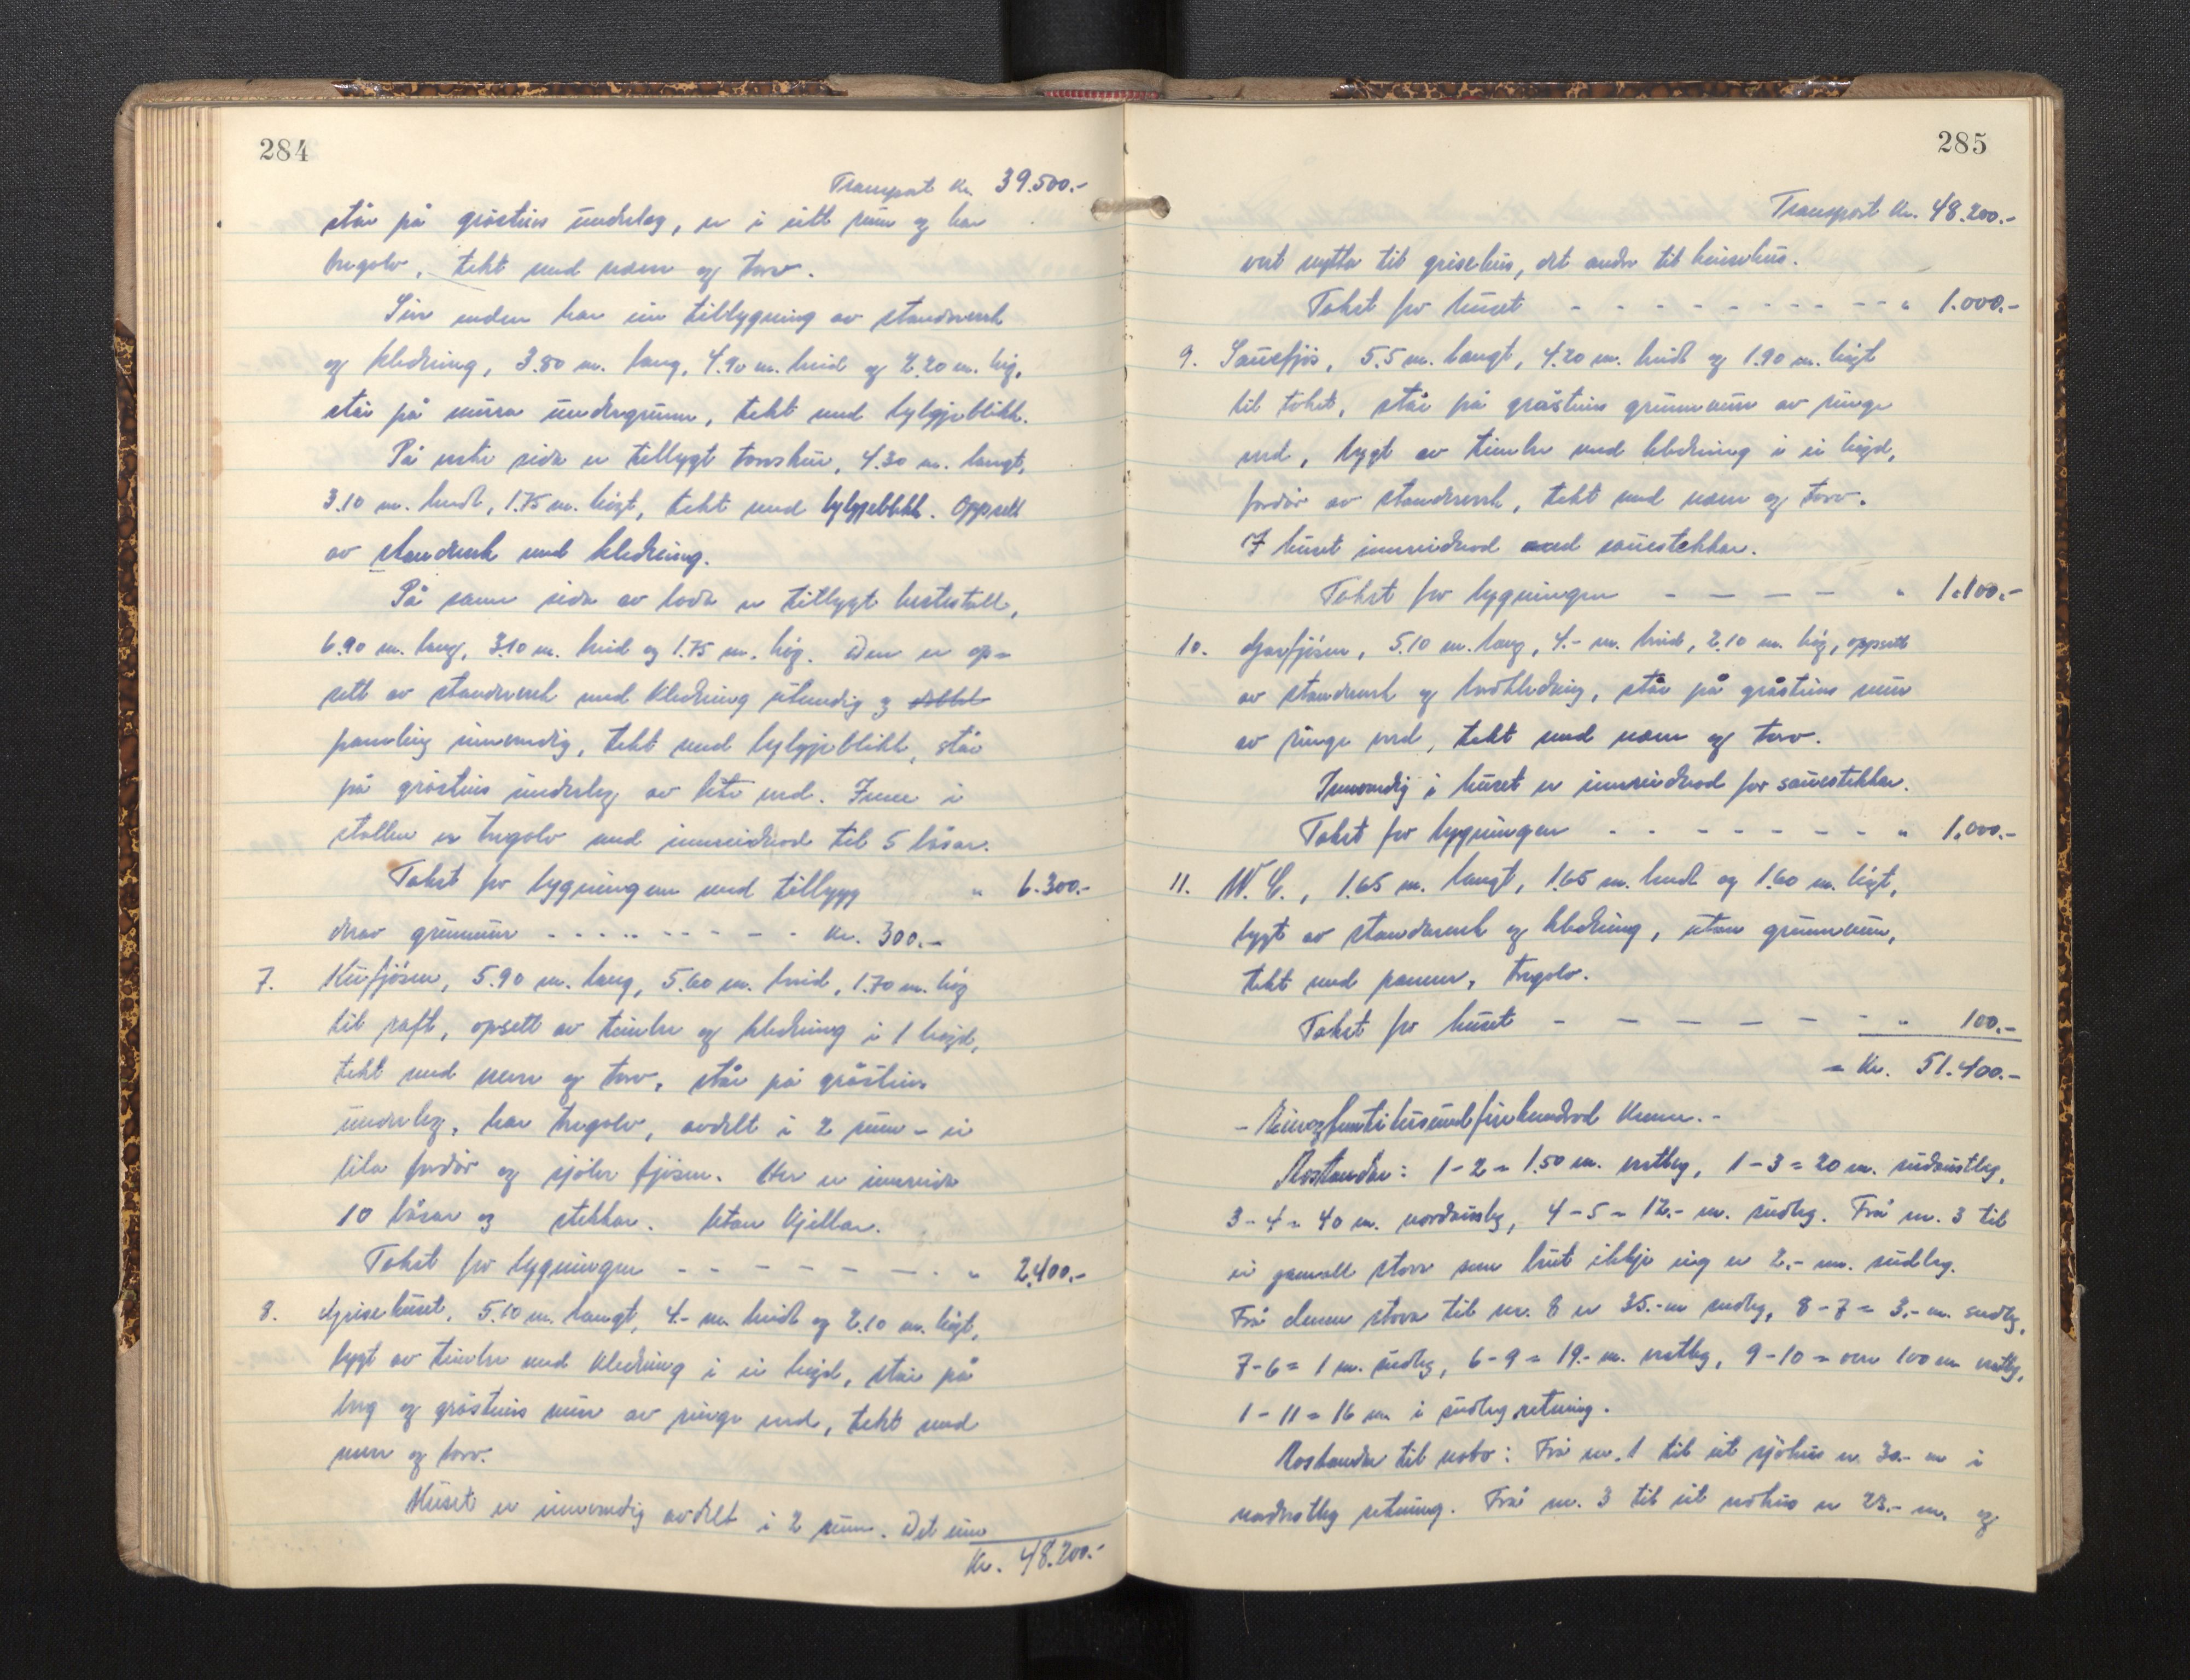 284
Transport kr. 39.500.-
står på gråsteins underlag, er i eitt rum og har
tregolv, tekt med næver og torv.
Sørenden har ein tilbygning av standverk
og kledning, 3.80 m. lang, 4.90 m. breid og 2.20 m. høg,
står på mura undergrunn, tekt med bylgjeblikk.
På nørste sida er tilbygt torvskur, 4.30 m. langt,
3.10 m. breidt, 1.75 m. høgt, tekt med bylgjeblikk. Oppsett
av standverk med kledning.
På same sida av løda er tilbygt hestestall,
6.90 m. lang, 3.10 m. breid og 1.75 m. høg. Den er op-
sett av standverk med kledning utvendig og
paneling innvendig, tekt med bylgjeblikk, står
på gråsteins underlag av lite verd. Inne i
stallen er tregolv med innreidnad til 5 båsar.
Takst for bygningen med tilbygg " 6.300.-
derav grunnmur - - - - - - - - - kr. 300.-
7. Kufjøsen, 5.90 m. lang, 5.60 m. breid, 1.70 m. høg
til raft, opsett av timber og kledning i 1 høgd,
tekt med never og torv, står på gråsteins
underlag, har tregolv, avdelt i 2 rum - ei
lita fordør og sjølve fjøsen. Her er innreidde
10 båsar og stekkar. Utan kjellar.
Takst for bygningen - - - - - - - - " 2.400.-
8. Grisehuset, 5.10 m. langt, 4.- m. breidt og 2.10 m. høgt,
bygt av timber med kledning i ei høgd, står på
berg og gråsteins mur av ringe verd, tekt med
never og torv.
Huset er innvendig avdelt i 2 rum. Det eine
Kr. 48.200.-
285
Transport kr. 48.200.-
vert nytta til grisehus, det andre til hønsehus.
Takst for huset - - - - - - - - - - " 1.000.-
9. Sauefjøs, 5.5 m. langt, 4.20 m. breidt og 1.90 m. høgt
til taket, står på gråsteins grunnmur av ringe
verd, bygt av timber med kledning i ei høgd,
fordør av standverk, tekt med næver og torv.
I huset innreidnad med sauestekkar.
Takst for bygningen - - - - " 1.100.-
10. Gardfjøsen, 5.10 m. lang, 4.- m. breid, 2.10 m. høg, oppsett
av standverk og bordkledning, står på gråsteins mur
av ringe verd, tekt med næver og torv.
Innvendig i huset er innreidnad for sauestekkar.
Takst for bygningen - - - - - - - - " 1.000.-
11. W. C., 1.65 m. langt, 1.65 m. breidt og 1.60 m. høgt,
bygt av standverk og kledning, utan grunnmur,
tekt med panner, tregolv.
Takst for huset - - - - - - - " 100.-
= Kr. 51.400.-
- Einogfemtitusundfirehundrad kroner. -
Avstandar: 1 - 2 = 1.50 m. vestleg, 1 - 3 = 20 m. sudaustleg,
3 - 4 = 40 m. nordausleg, 4 - 5 = 12.- m. sudleg. Frå nr. 3 til
ei gamall stove som brut ikkje eig er 2.- m. sudleg.
Frå denne stova til nr. 8 er 35.- m sudleg, 8 - 7 = 3.- m. sudleg,
7 - 6 = 1 m. sudleg, 6 - 9 = 19.- m. vestleg, 9 - 10 = over 100 m vestleg,
1 - 11 = 16 m. i sudleg retning.
Avstandar til nabo: Frå nr. 1 til eit sjøhus er 30.- m i
nordvestleg retning. Frå nr. 3 til eit vedhus er 23.- m. og